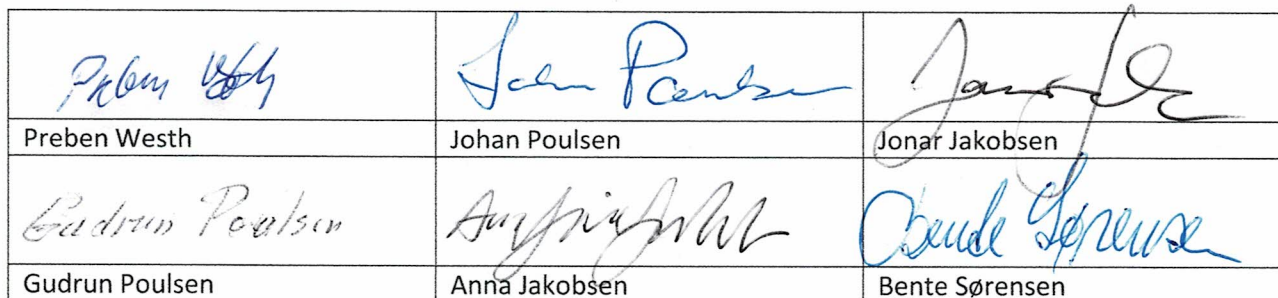 Preben Westh Johan Poulsen
Preben Westh Johan Poulsen Jonar Jakobsen
Gudrun Poulsen Bente Sørensen
Gudrun Poulsen Anna Jakobsen Bente Sørensen